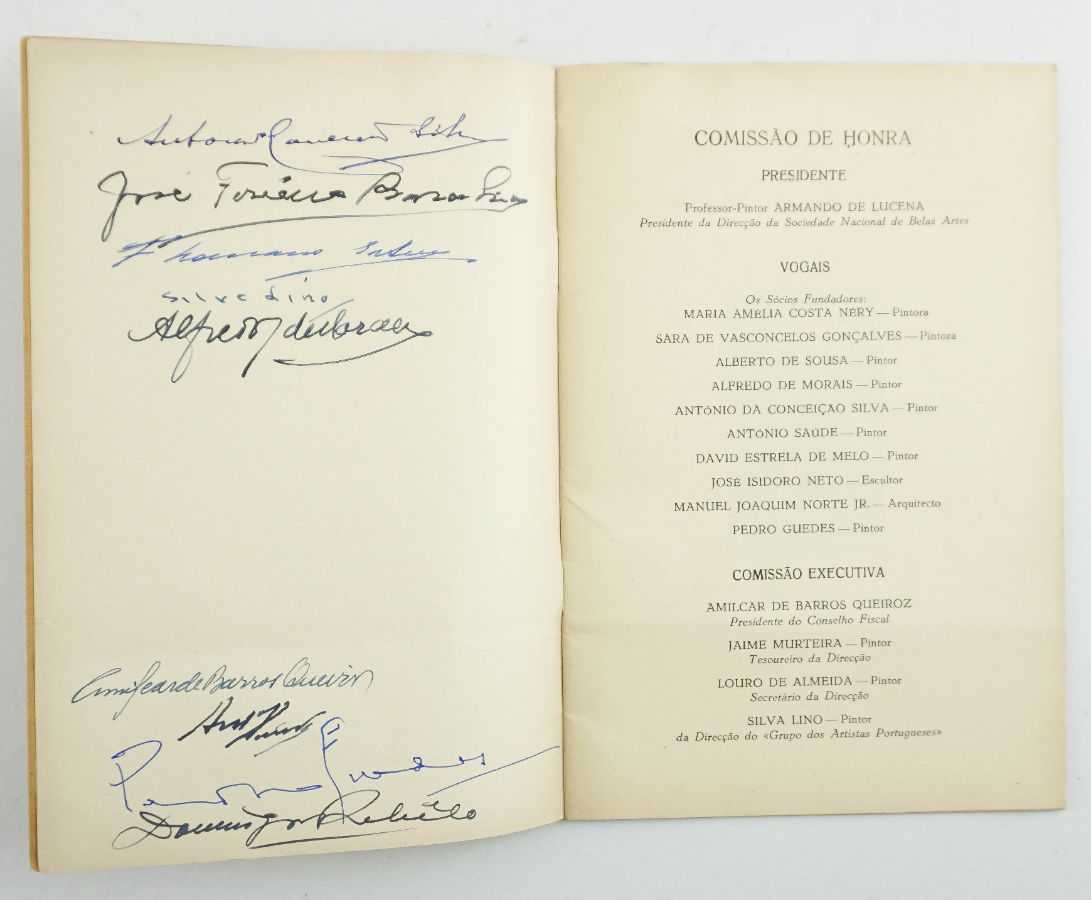 Silva Lino
Alfredo de Morais
Amilcar de Barros Queiroz
Pedro Guedes
Domingos Rebêlo
COMISSÃO DE HONRA
PRESIDENTE
Professor-Pintor ARMANDO DE LUCENA
Presidente da Direcção da Sociedade Nacional de Belas Artes
VOGAIS
Os Sócios Fundadores:
MARIA AMÉLIA COSTA NERY — Pintora
SARA DE VASCONCELOS GONÇALVES — Pintora
ALBERTO DE SOUSA — Pintor
ALFREDO DE MORAIS — Pintor
ANTÓNIO DA CONCEIÇÃO SILVA — Pintor
ANTÓNIO SAÚDE — Pintor
DAVID ESTRELA DE MELO — Pintor
JOSÉ ISIDORO NETO — Escultor
MANUEL JOAQUIM NORTE JR. — Arquitecto
PEDRO GUEDES — Pintor
COMISSÃO EXECUTIVA
AMILCAR DE BARROS QUEIROZ
Presidente do Conselho Fiscal
JAIME MURTEIRA — Pintor
Tesoureiro da Direcção
LOURO DE ALMEIDA — Pintor
Secretário da Direcção
SILVA LINO — Pintor
da Direcção do «Grupo dos Artistas Portugueses»